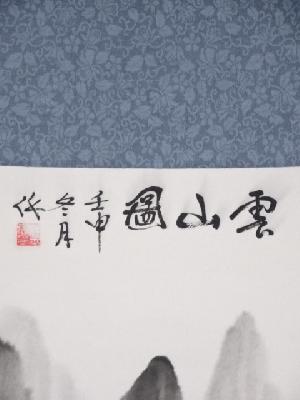 雲山圖
壬申
冬月